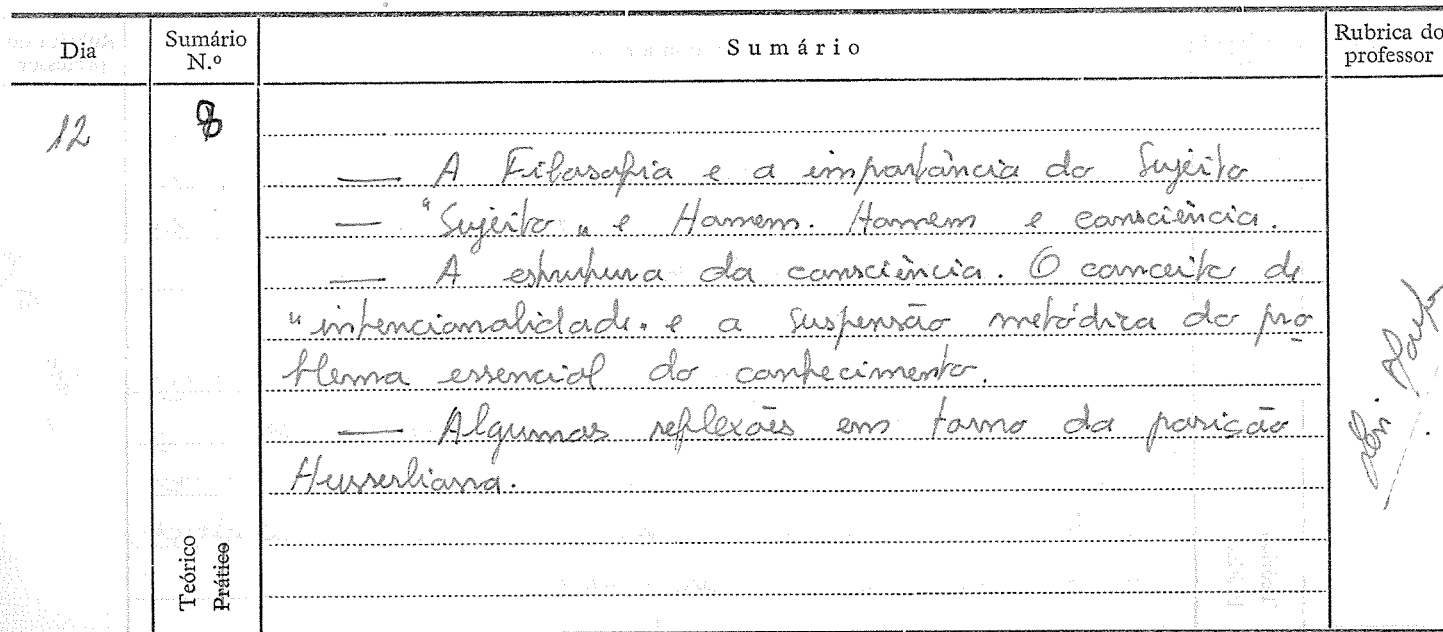 Dia
Sumário N.º
Sumário
Rubrica do professor
12
8
— A Filosofia e a importância do Sujeito
— "Sujeito" e Homem. Homem e consciência.
— A estrutura da consciência. O conceito de
"intencionalidade" e a suspensão metódica do pro
blema essencial do conhecimento.
— Algumas reflexões em torno da posição
Husserliana.
Teórico
Prático